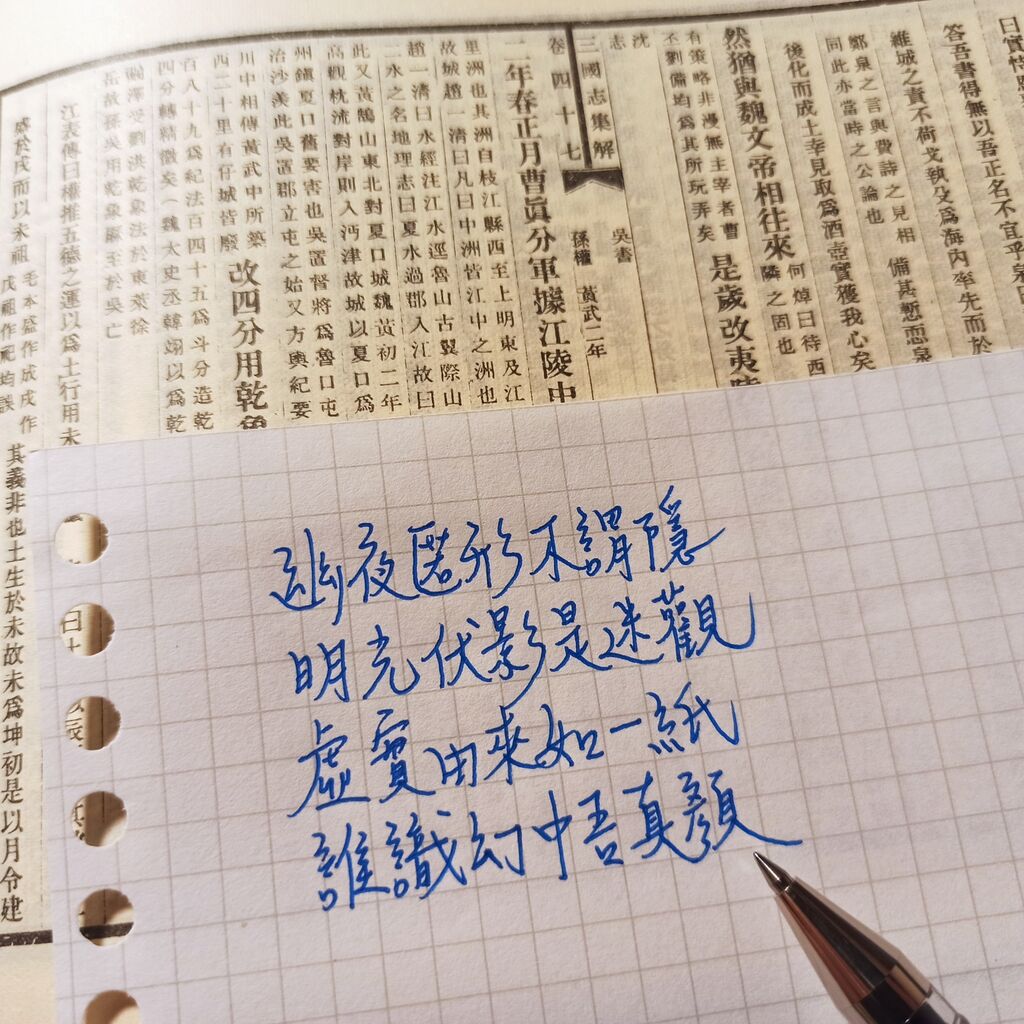 日實性
答吾書得無以吾正名不宜乎
維城之責不荷戈執殳爲海內率先而於
鄭泉之言與費詩之見相 備甚慙恧泉
同此亦當時之公論也
後化而成土幸見取爲酒壺實獲我心矣
然猶與魏文帝相往來 何焯曰待西鄰之固也
有策略非漫無主宰者曹
不劉備均爲其所玩弄矣 是歲改夷陵
沈
志
三國志集解 卷四十七 吳書 孫權 黃武二年
二年春正月曹眞分軍據江陵中
里洲也其洲自枝江縣西至上明東及江
故城趙一清曰凡曰中洲皆江中之洲也
趙一清曰水經注江水逕魯山古翼際山
二水之名地理志曰夏水過郡入江故曰
此又黃鵠山東北對夏口城魏黃初二年
高觀枕流對岸則入沔津故城以夏口爲
州鎭夏口舊要害也吳置督將爲魯口屯
治沙羨此吳置郡立屯之始又方輿紀要
川中相傳黃武中所築
西二十里有仔城皆廢 改四分用乾象
百八十九爲紀法百四十五爲斗分造乾
四分轉精微矣（魏太史丞韓翊以爲乾
闞澤受劉洪乾象法於東萊徐
岳故孫吳用乾象曆至於吳亡
江表傳曰權推五德之運以爲土行用未
祖辰臘 毛本盛作成戌作戊祖作祀均誤 其義非也土生於未故未爲坤初是以月令建
幽夜匿形不謂隱
明光伏影是迷觀
虛實由來如一紙
誰識幻中吾真顏